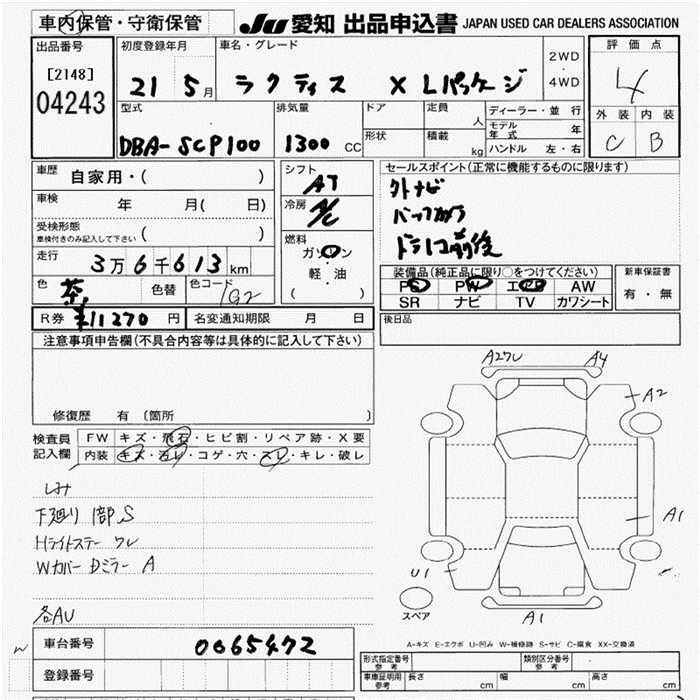 車内保管・守衛保管
JU 愛知 出品申込書 JAPAN USED CAR DEALERS ASSOCIATION
出品番号
[2148]
04243
初度登録年月
21 5月
車名・グレード
ラクティス X Lパッケージ
2WD
・
4WD
評価点
4
外装 内装
C B
型式
DBA-SCP100
排気量
1300 CC
ドア
定員
人
形状
積載
kg
ディーラー・並行
モデル年式 年
ハンドル 左・右
車歴
自家用・( )
車検
年 月( 日)
受検形態
車検付きのみ記入して下さい ( )
走行
3万6千613km
色
茶
色替
色コード
R券 ¥11270 円
名変通知期限 月 日
シフト
AT
冷房
A/C
燃料
ガソリン
・
軽・油
( )
セールスポイント(正常に機能するものに限ります)
外ナビ
バックカメラ
ドラレコ前後
装備品(純正品に限り○をつけてください)
PS PW エアB AW
SR ナビ TV カワシート
新車保証書
有・無
後日品
注意事項申告欄(不具合内容等は具体的に記入して下さい)
修復歴 有 (箇所 )
検査員記入欄
FW キズ・飛石・ヒビ割・リペア跡・X要
内装 キズ・汚レ・コゲ・穴・スレ・キレ・破レ
下廻り 1部S
Hライトステー ワレ
Wカバー Dミラー A
各AU
A4
A2
A1
U1
A1
スペア
A-キズ E-エクボ U-凹み W-補修跡 S-サビ C-腐食 XX-交換済
車台番号
0065472
登録番号
形式指定番号
参考
類別区分番号
参考
車庫証明用
参考
長さ cm 幅 cm 高さ cm